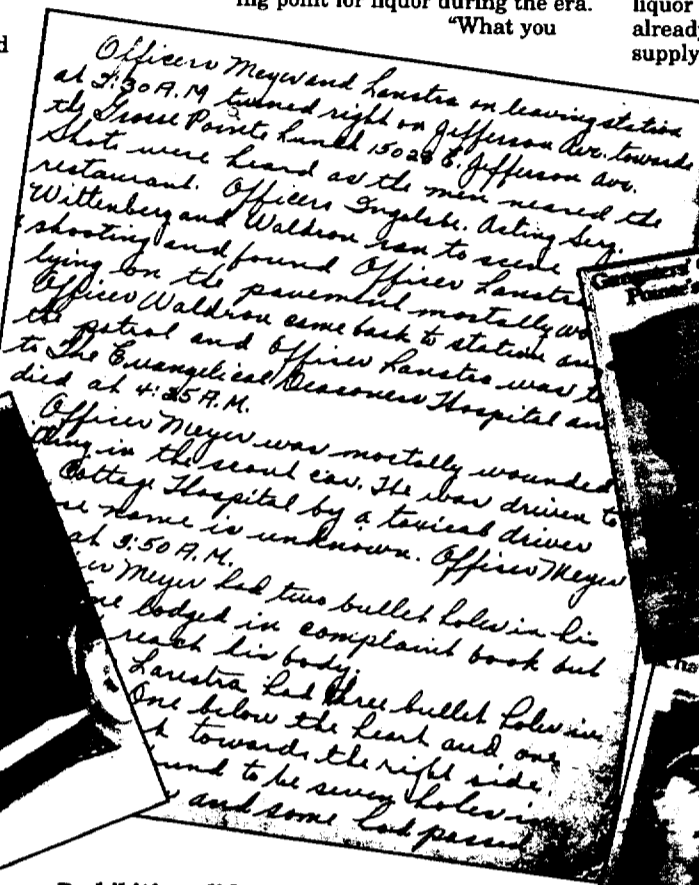 ing point for liquor during the era.
"What you
liquor
already
supply
Officers Meyer and Lanstra on leaving station
at 3:30 A.M turned right on Jefferson Ave. towards
the Grosse Pointe Lunch 15028 E. Jefferson Ave.
Shots were heard as the men neared the
restaurant. Officers Ingelsbe. Acting Serg.
Wittenberg and Waldron ran to scene
shooting and found Officer Lanstra
lying on the pavement mortally wo
Officer Waldron came back to station an
the patrol and Officer Lanstra was t
to The Evangelical Deaconess Hospital an
died at 4:25 A.M.
Officer Meyer was mortally wounded
in the scout car. He was driven to
Cottage Hospital by a taxicab driver
se name is unknown. Officer Meyer
at 3:50 A.M.
er Meyer had two bullet holes in his
ne lodged in complaint book but
reach his body.
Lanstra had three bullet holes in
One below the heart and one
towards the right side.
und to be seven holes in
and some had passed
Gangsters'
Pointe's